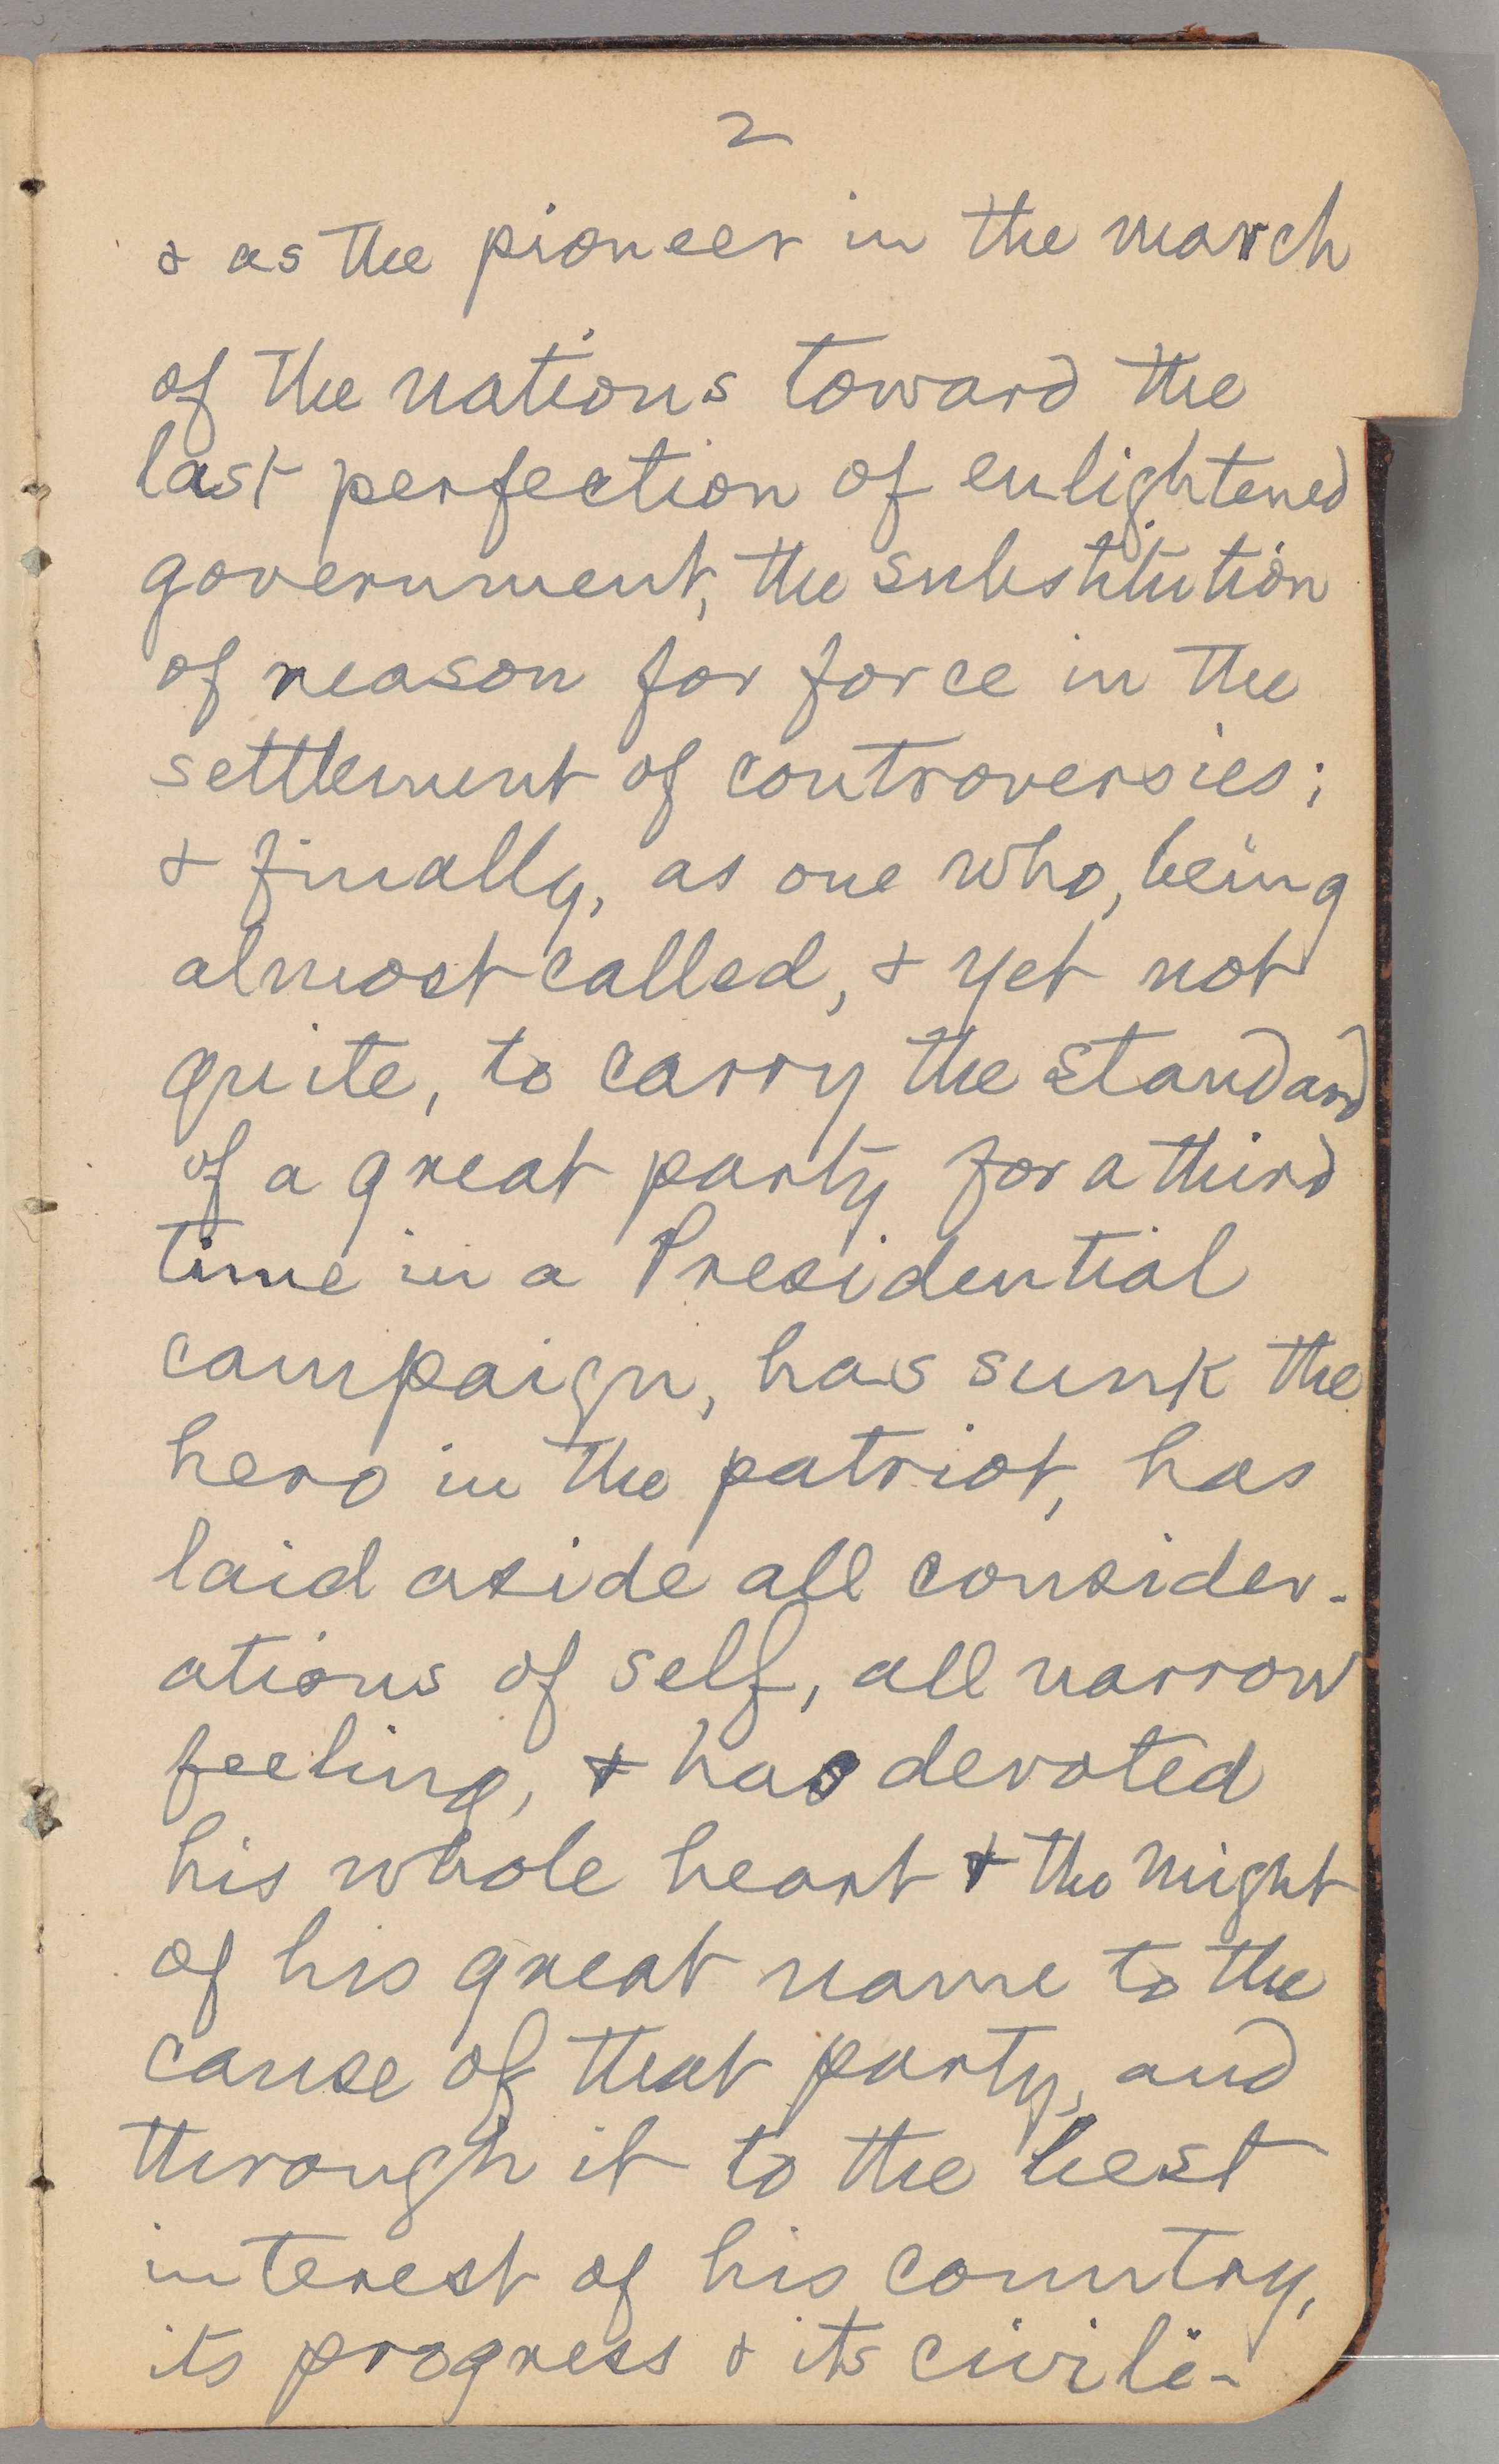 2
& as the pioneer in the march
of the nations toward the
last perfection of enlightened
government, the substitution
of reason for force in the
settlement of controversies;
& finally, as one who, being
almost called, & yet not
quite, to carry the standard
of a great party for a third
time in a Presidential
campaign, has sunk the
hero in the patriot, has
laid aside all consider-
ations of self, all narrow
feeling, & has devoted
his whole heart & the might
of his great name to the
cause of that party, and
through it to the best
interest of his country,
its progress & its civili-